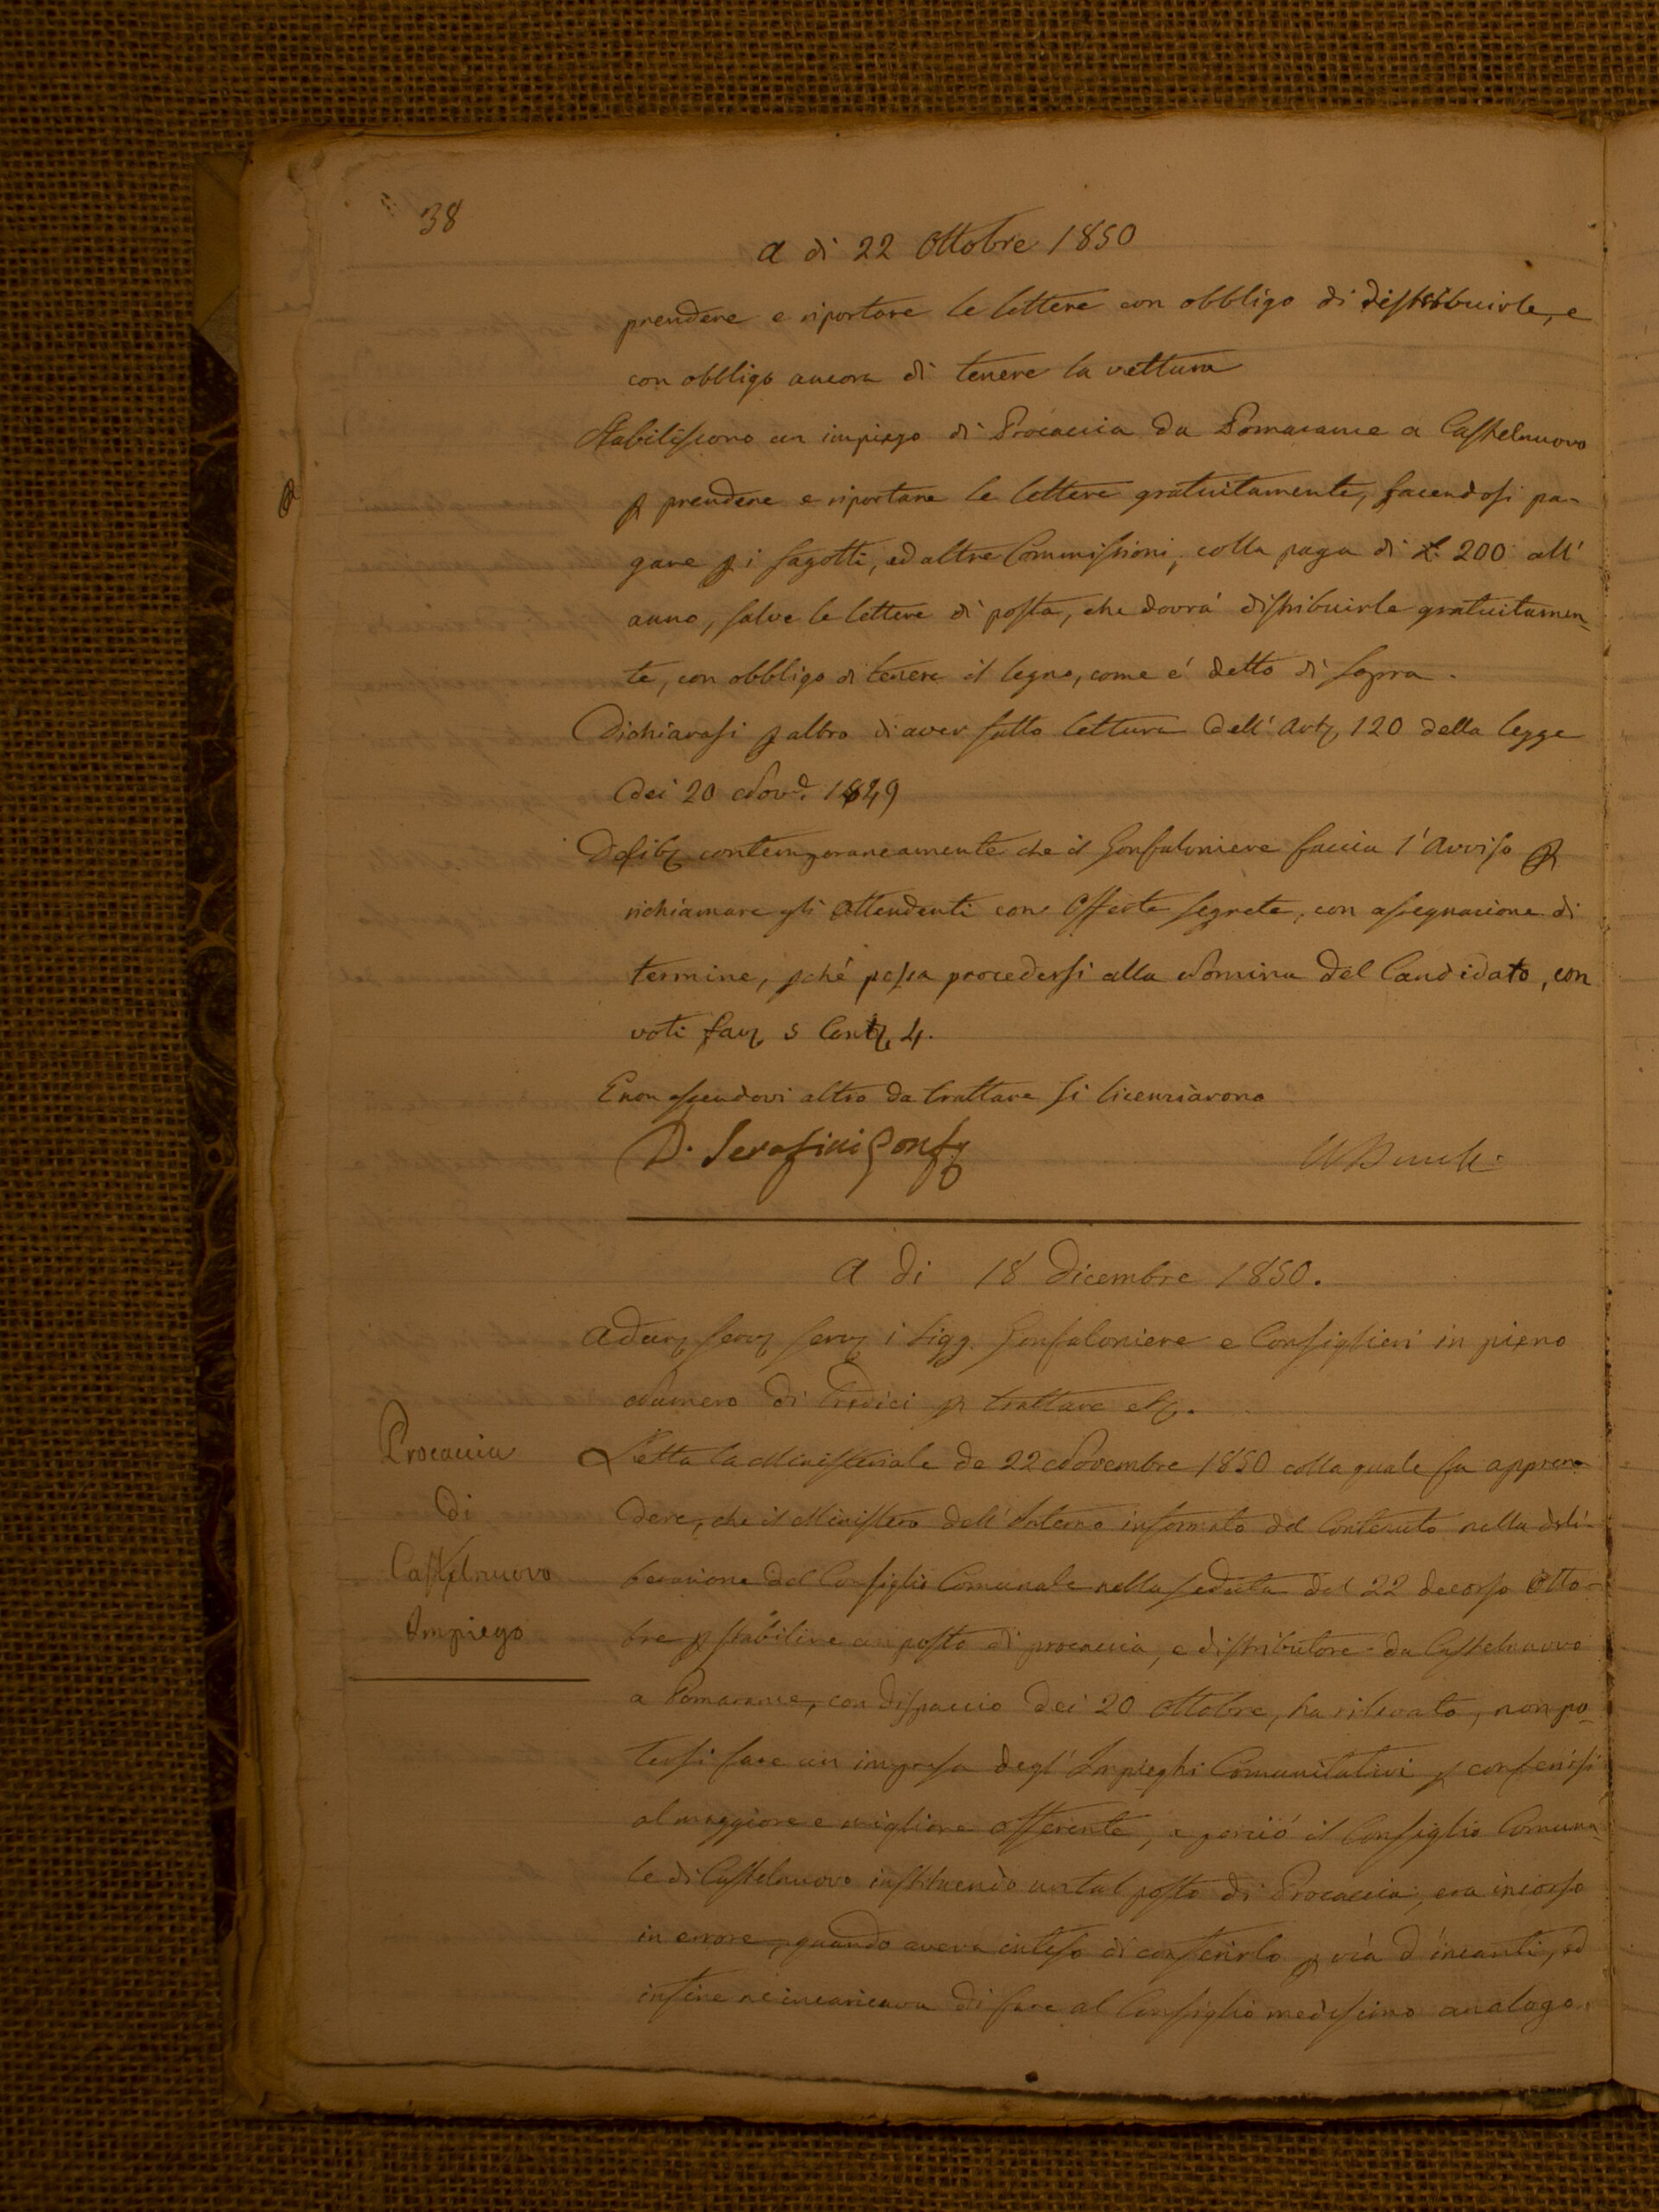 38
A di 22 Ottobre 1850
prendere e riportare le lettere con obbligo di distribuirle, e
con obbligo ancora di tenere la vettura
Stabiliscono un impiego di Procaccia da Pomarance a Castelnuovo
p prendere e riportare le lettere gratuitamente, facendosi pa-
gare p i fagotti, ed altre Commissioni, colla paga di £. 200 all'
anno, salve le lettere di posta, che dovrà distribuirle gratuitamen-
te, con obbligo di tenere il legno, come é detto di sopra.
Dichiarasi p altro di aver fatto lettura dell' Art. 120 della legge
dei 20 Nov. 1849
Delib. contemporaneamente che il Gonfaloniere faccia l'Avviso p
richiamare gli Attendenti con Offerte segrete, con assegnazione di
termine, pché possa procedersi alla Nomina del Candidato, con
voti fav. 5 Cont. 4.
E non essendovi altro da trattare si licenziarono
D. Serafini Gonf.
A di 18 Dicembre 1850.
Adun. serv. serv. i Sigg. Gonfaloniere e Consiglieri in pieno
Numero di Tredici p trattare et.
Procaccia
di
Castelnuovo
Impiego
Letta la Ministeriale de 22 Novembre 1850 colla quale fa appren-
dere, che il Ministero dell' Interno informato del Contenuto nella deli-
berazione del Consiglio Comunale nella seduta del 22 decorso Otto-
bre p stabilire un posto di procaccia, e distributore da Castelnuovo
a Pomarance, con dispaccio dei 20 Ottobre, ha rilevato, non po-
tersi fare un impresa degl' Impieghi Comunitativi p conferirsi
al maggiore e migliore offerente, e perciò il Consiglio Comuna-
le di Castelnuovo instituendo un tal posto di Procaccia, era incorso
in errore, quando aveva inteso di conferirlo p via d'incanti, ed
infine ne incaricava di fare al Consiglio medesimo analogo